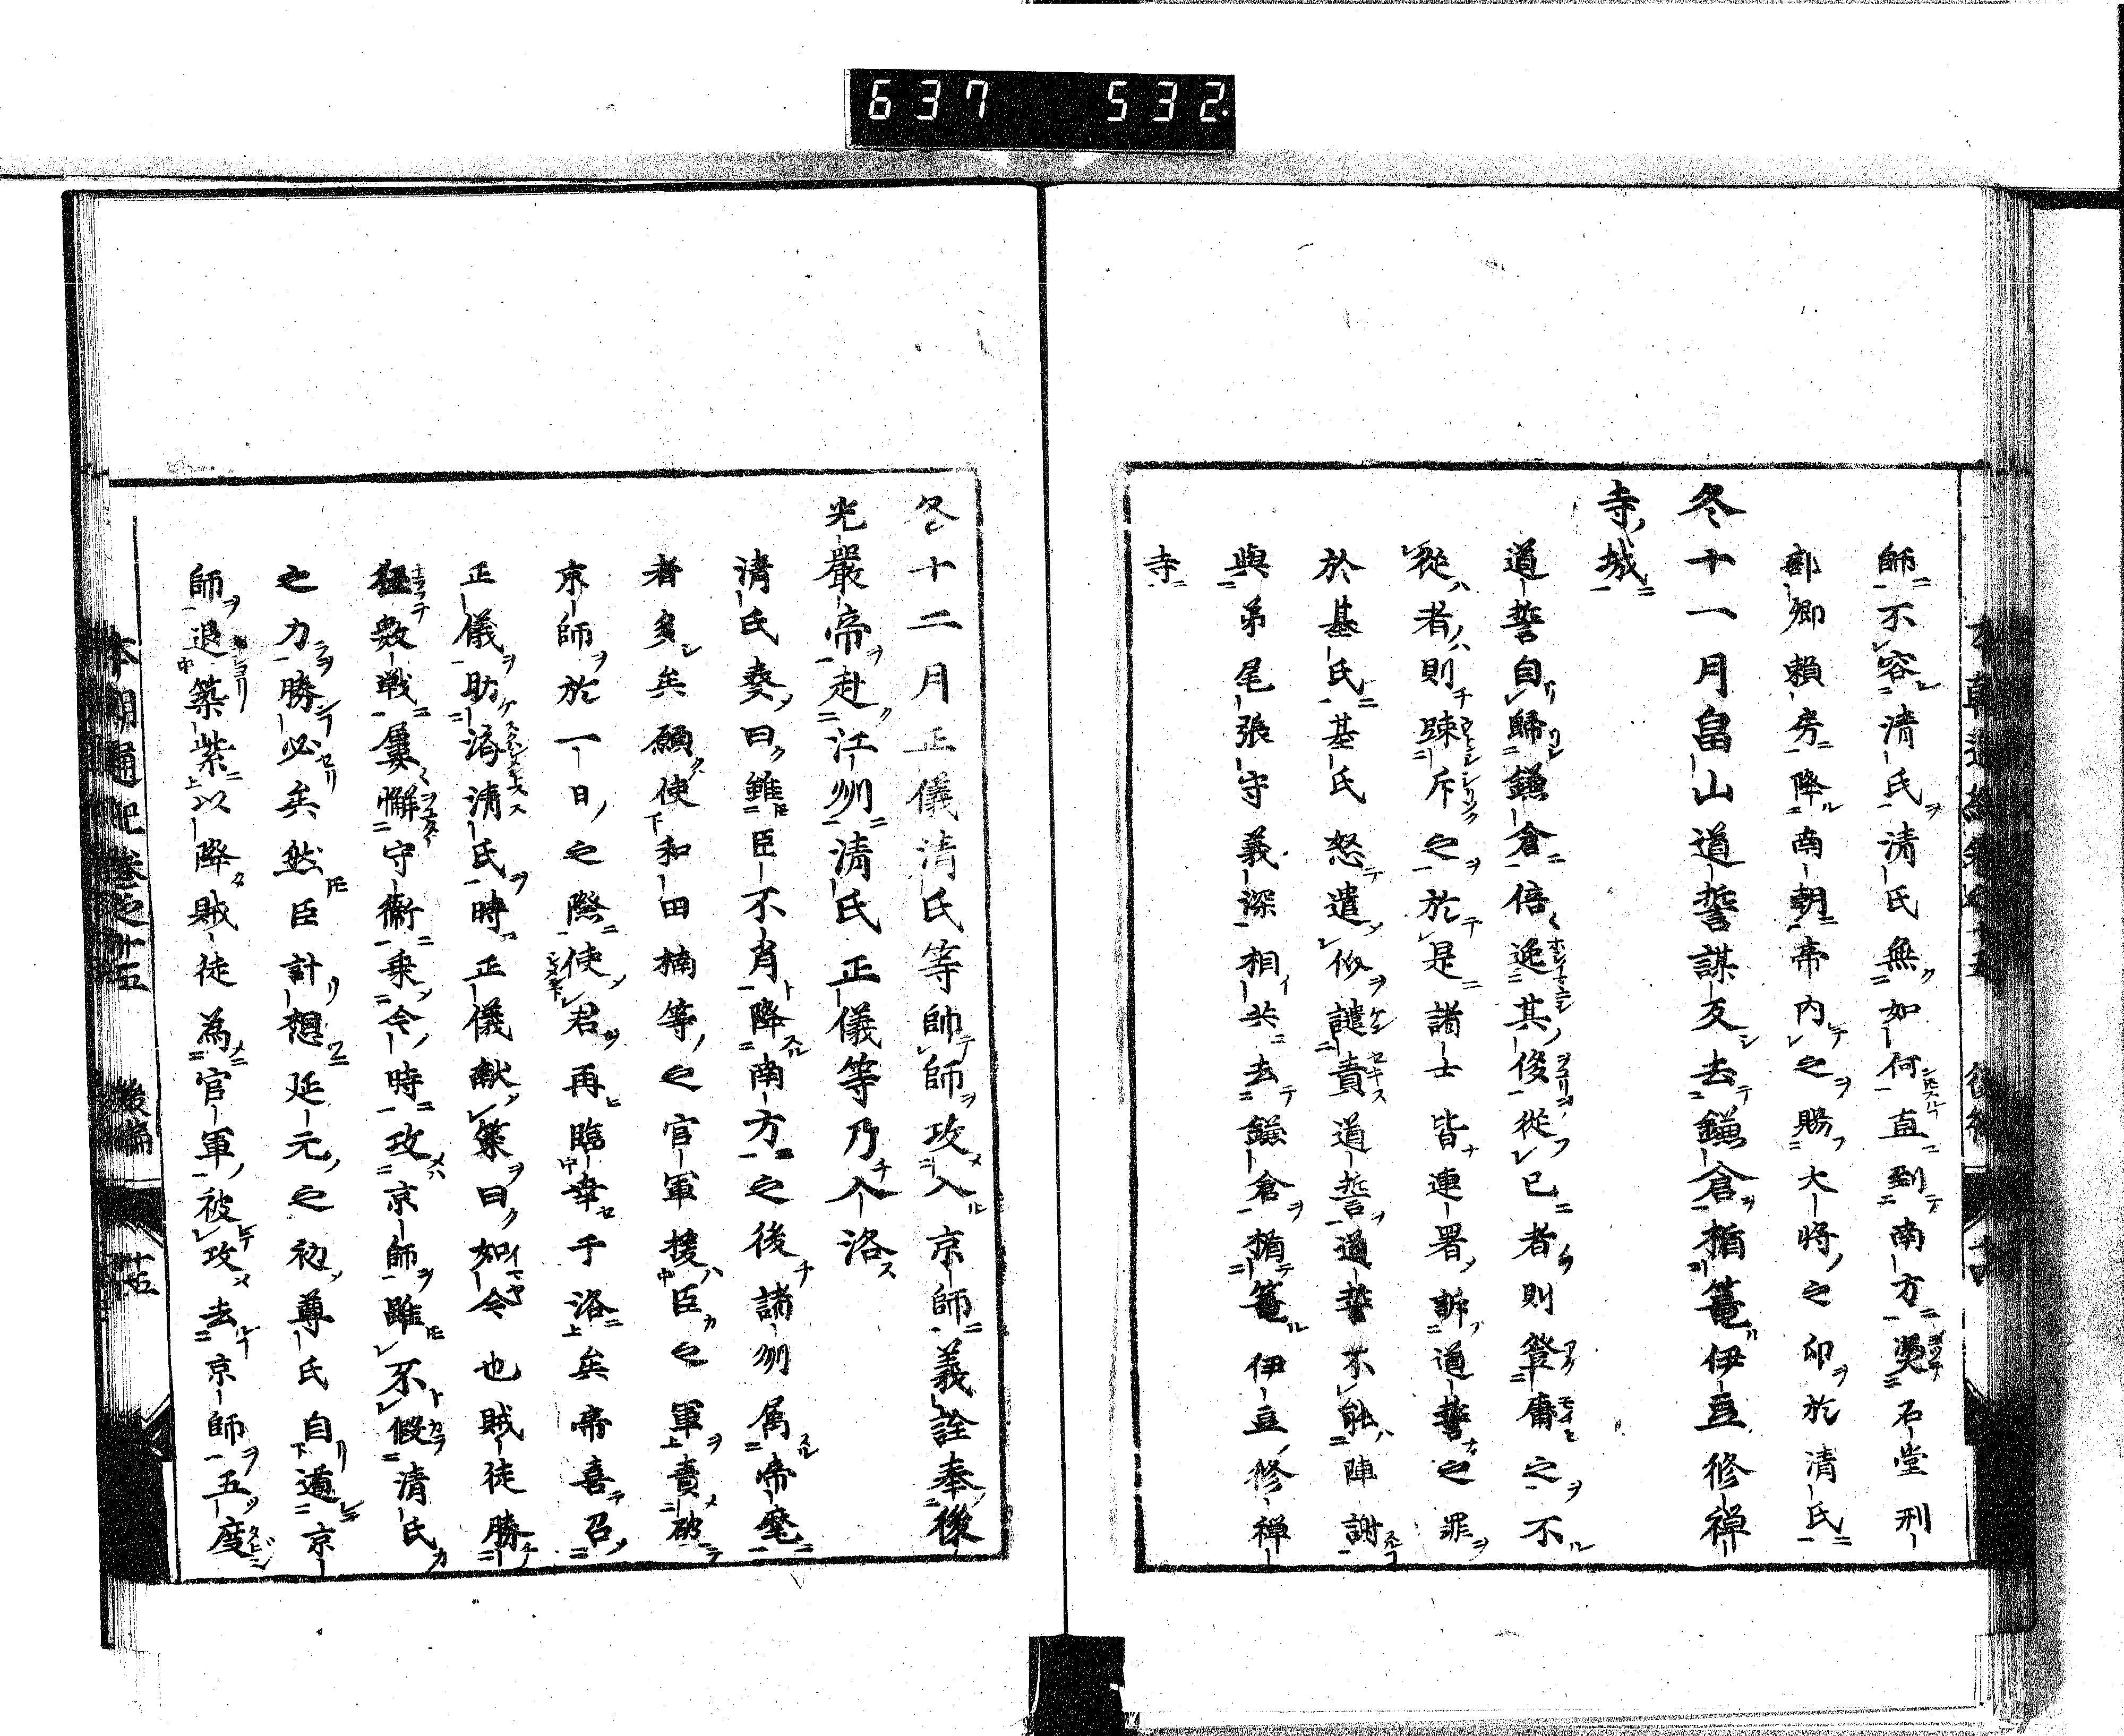 637 532.
師不容清氏清氏無如何直到南方奠石堂刑
部卿頼房降南朝帝内之賜大將之印於清氏
冬十一月畠山道誓謀反去鎌倉楯篭伊豆修禅
寺城
道誓自歸鎌倉倍逸其俊從己者則登庸之不
從者則疎斥之於是諸士皆連署訴道誓之罪
於基氏基氏怒遣使譴責道誓道誓不能陣謝
與弟尾張守義深相共去鎌倉楯篭伊豆修禅
寺
冬十二月正儀清氏等帥師攻入京師義詮奉後
光嚴帝赴江州清氏正儀等乃入洛
清氏奏曰雖臣不肖降南方之後諸州属帝麾
者多矣願使和田楠等之官軍援臣之軍責破
京師於一日之際使君再臨幸于洛矣帝喜召
正儀助清氏時正儀献策曰如今也賊徒勝
狃數戰屢懈守衞乗今時攻京師雖不假清氏
之力勝必矣然臣計想延元之初尊氏自遁京
師退築紫以降賊徒為官軍被攻去京師五度
本朝通紀巻之十五 後編 十五